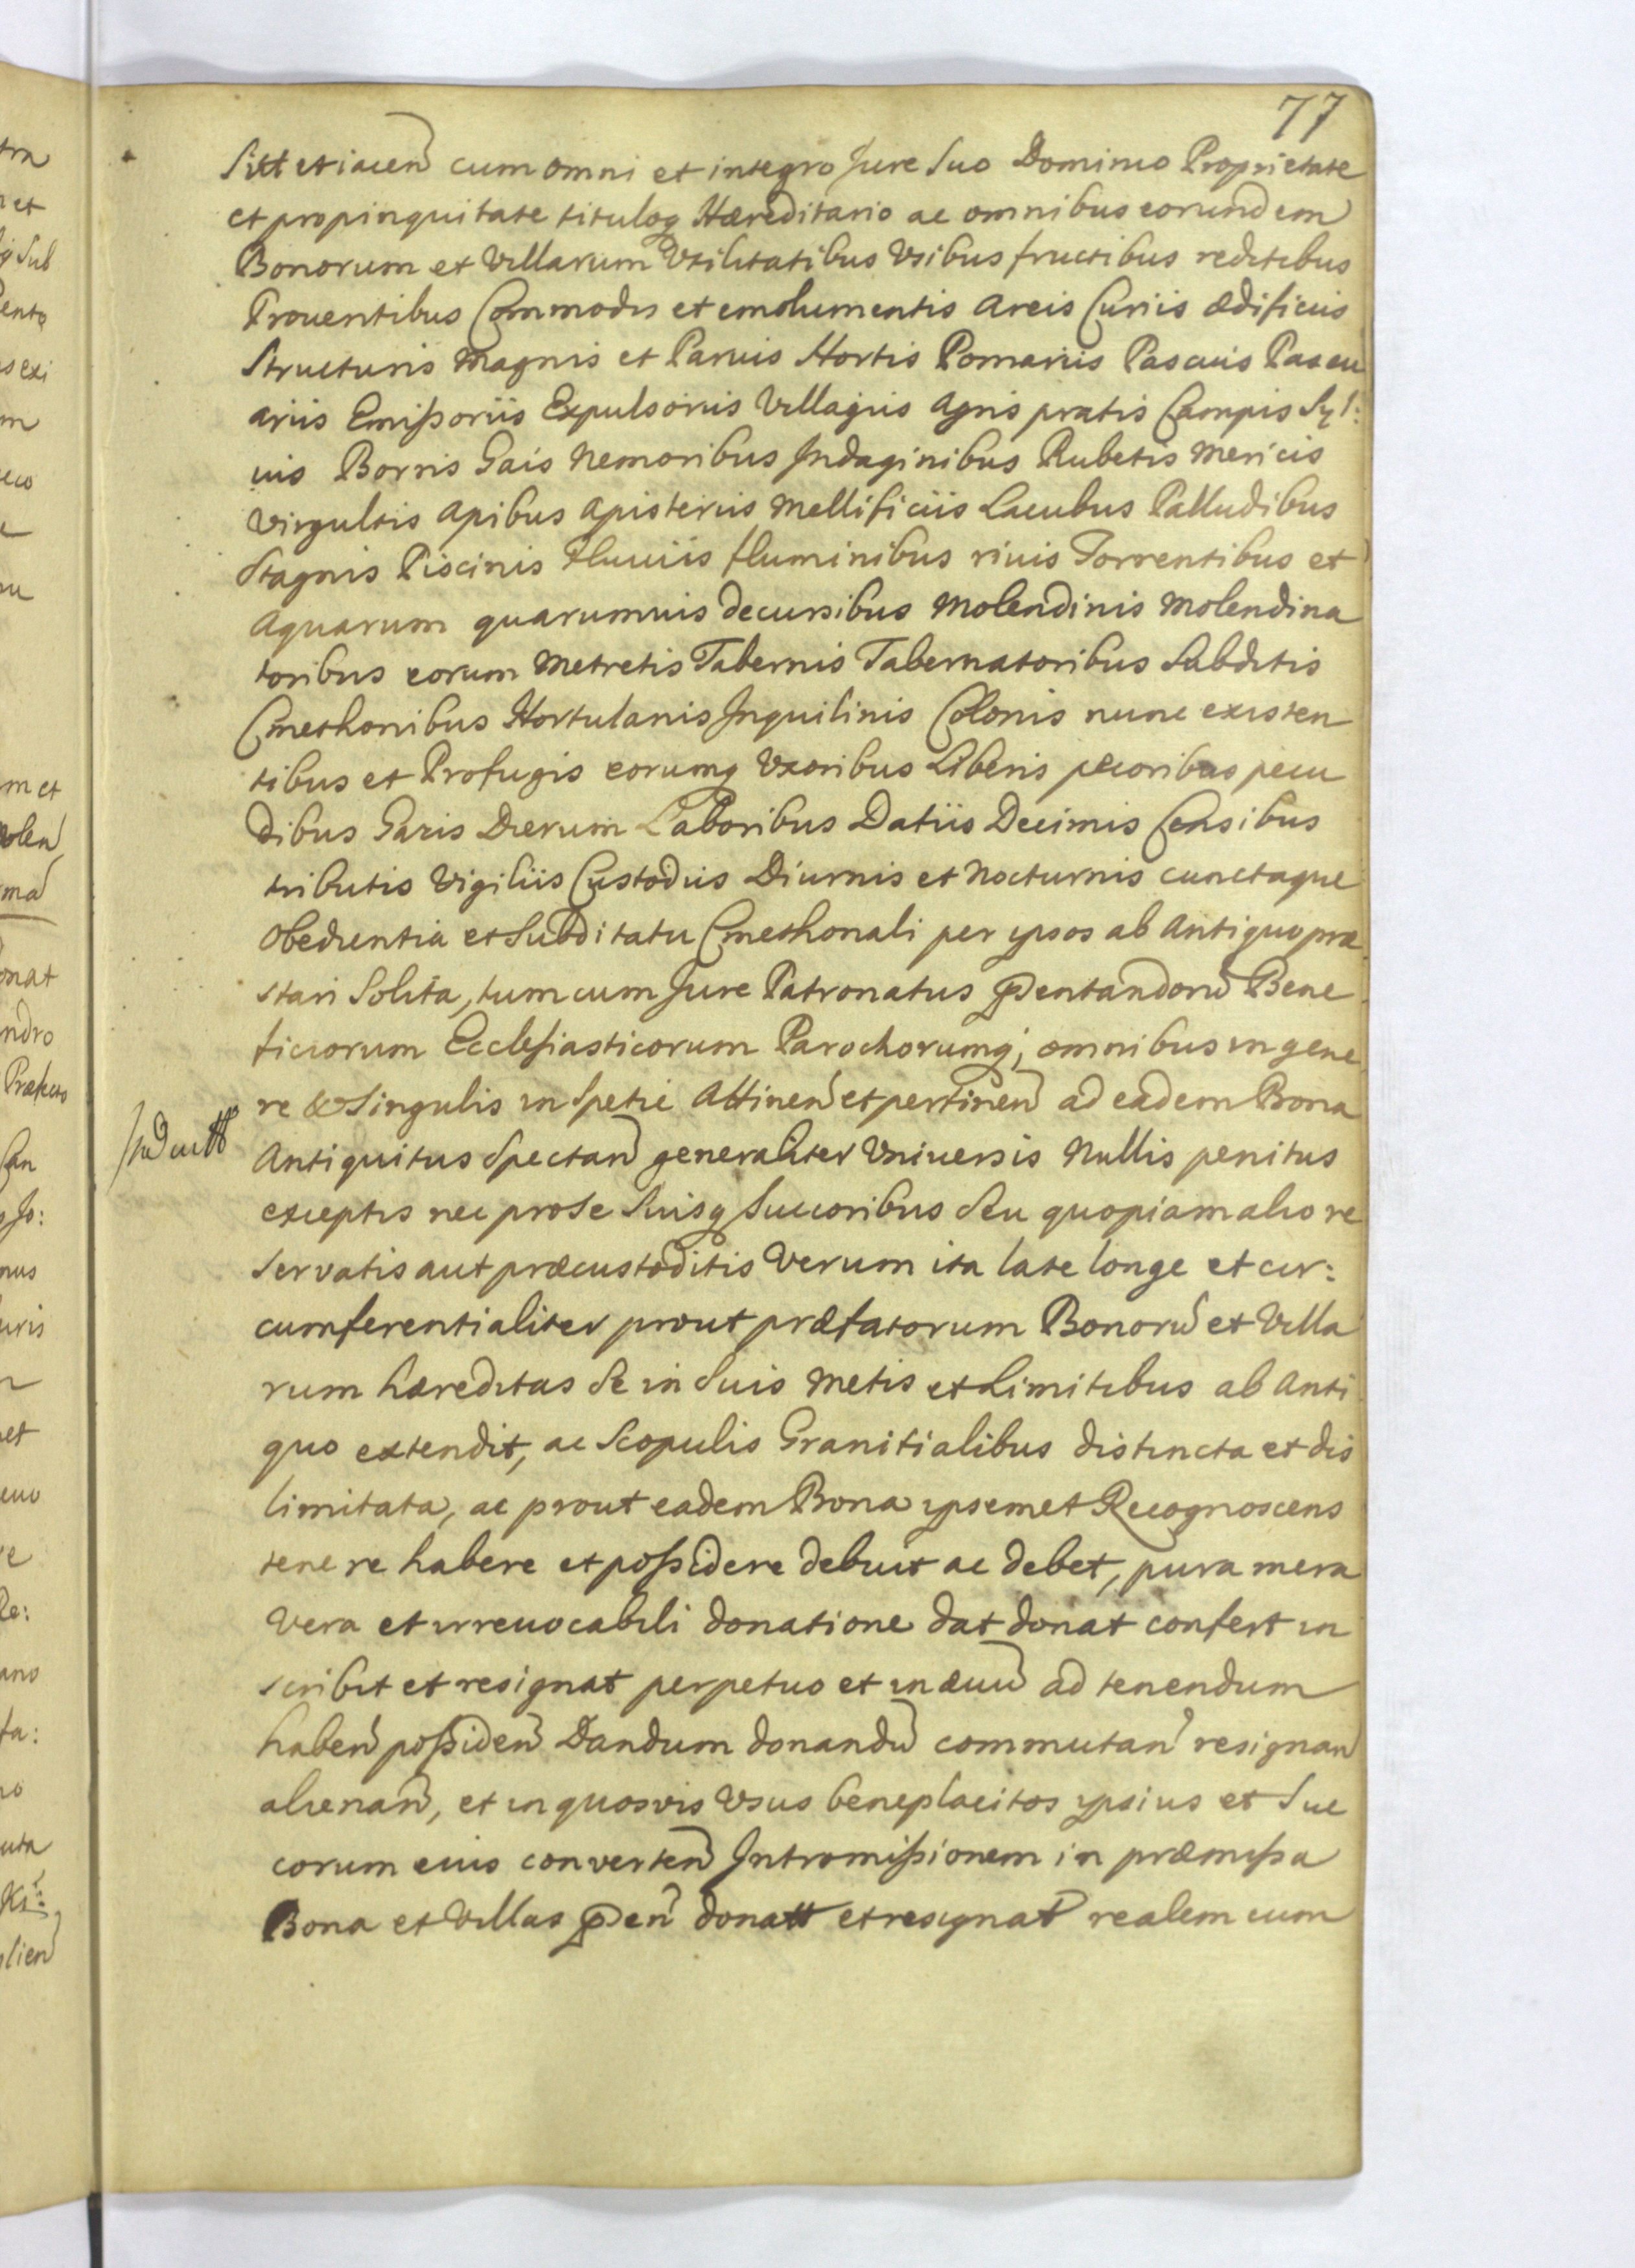 77
Sitt et iacen cum omni et integro Jure Suo Dominio Proprietate
et propinquitate tituloq Hæreditario ac omnibus eorundem
Bonorum et Villarum Vtilitatibus Vsibus fructibus reditibus
Prouentibus Commodis et emolumentis Areis Curiis ædificiis
Structuris Magnis et Paruis Hortis Pomariis Pascuis Pascu
ariis Emissoriis Expulsoriis Villagiis Agris pratis Campis Syl:
uis Borris Gais Nemoribus Indaginibus Rubetis Mericis
Virgultis Apibus Apisteriis Mellificiis Lacubus Palludibus
Stagnis Piscinis Fluuiis fluminibus riuis Torrentibus et
Aquarum quarumuis decursibus Molendinis Molendina
toribus eorum Metretis Tabernis Tabernatoribus Subditis
Cmethonibus Hortulanis Inquilinis Colonis nunc existen
tibus et Profugis eorumq Vxoribus Liberis pecoribus pecu
dibus Gazis Dierum Laboribus Datiis Decimis Censibus
tributis Vigiliis Custodiis Diurnis et Nocturnis cunctaque
Obedientia et Subditatu Cmethonali per ipsos ab Antiquo præ
stari Solita, tum cum Jure Patronatus pñtandorũ Bene
ficiorum Ecclesiasticorum Parochorumq; omnibus in gene
re & Singulis in Spetie Attinen et pertinen ad eadem Bona
Antiquitus Spectan generaliter Vniuersis Nullis penitus
exceptis nec pro Se Suisq Succoribus Seu quopiam alio re
servatis aut præcustoditis Verum ita late longe et cir:
cumferentialiter prout præfatorum Bonorũ et Villa
rum hæreditas Se in Suis Metis et Limitibus ab Anti
quo extendit, ac Scopulis Granitialibus distincta et dis
limitata, ac prout eadem Bona ipsemet Recognoscens
tenere habere et possidere debuit ac debet, pura mera
Vera et irreuocabili donatione dat donat confert in
scribit et resignat perpetuo et in æuũ ad tenendum
haben possiden Dandum donandũ commutan resignan
alienan, et in quosvis Vsus beneplacitos ipsius et Suc
corum eius converten Intromissionem in præmissa
Bona et Villas donatt et resignat realem cum